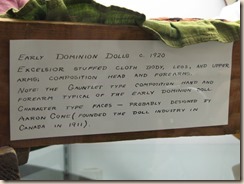 EARLY DOMINION DOLLS C. 1920
EXCELSIOR STUFFED CLOTH BODY, LEGS, AND UPPER
ARMS, COMPOSITION HEAD AND FOREARMS.
NOTE: THE GAUNTLET TYPE COMPOSITION HAND AND
FOREARM TYPICAL OF THE EARLY DOMINION DOLL.
CHARACTER TYPE FACES - PROBABLY DESIGNED BY
AARON CONE (FOUNDED THE DOLL INDUSTRY IN
CANADA IN 1911).